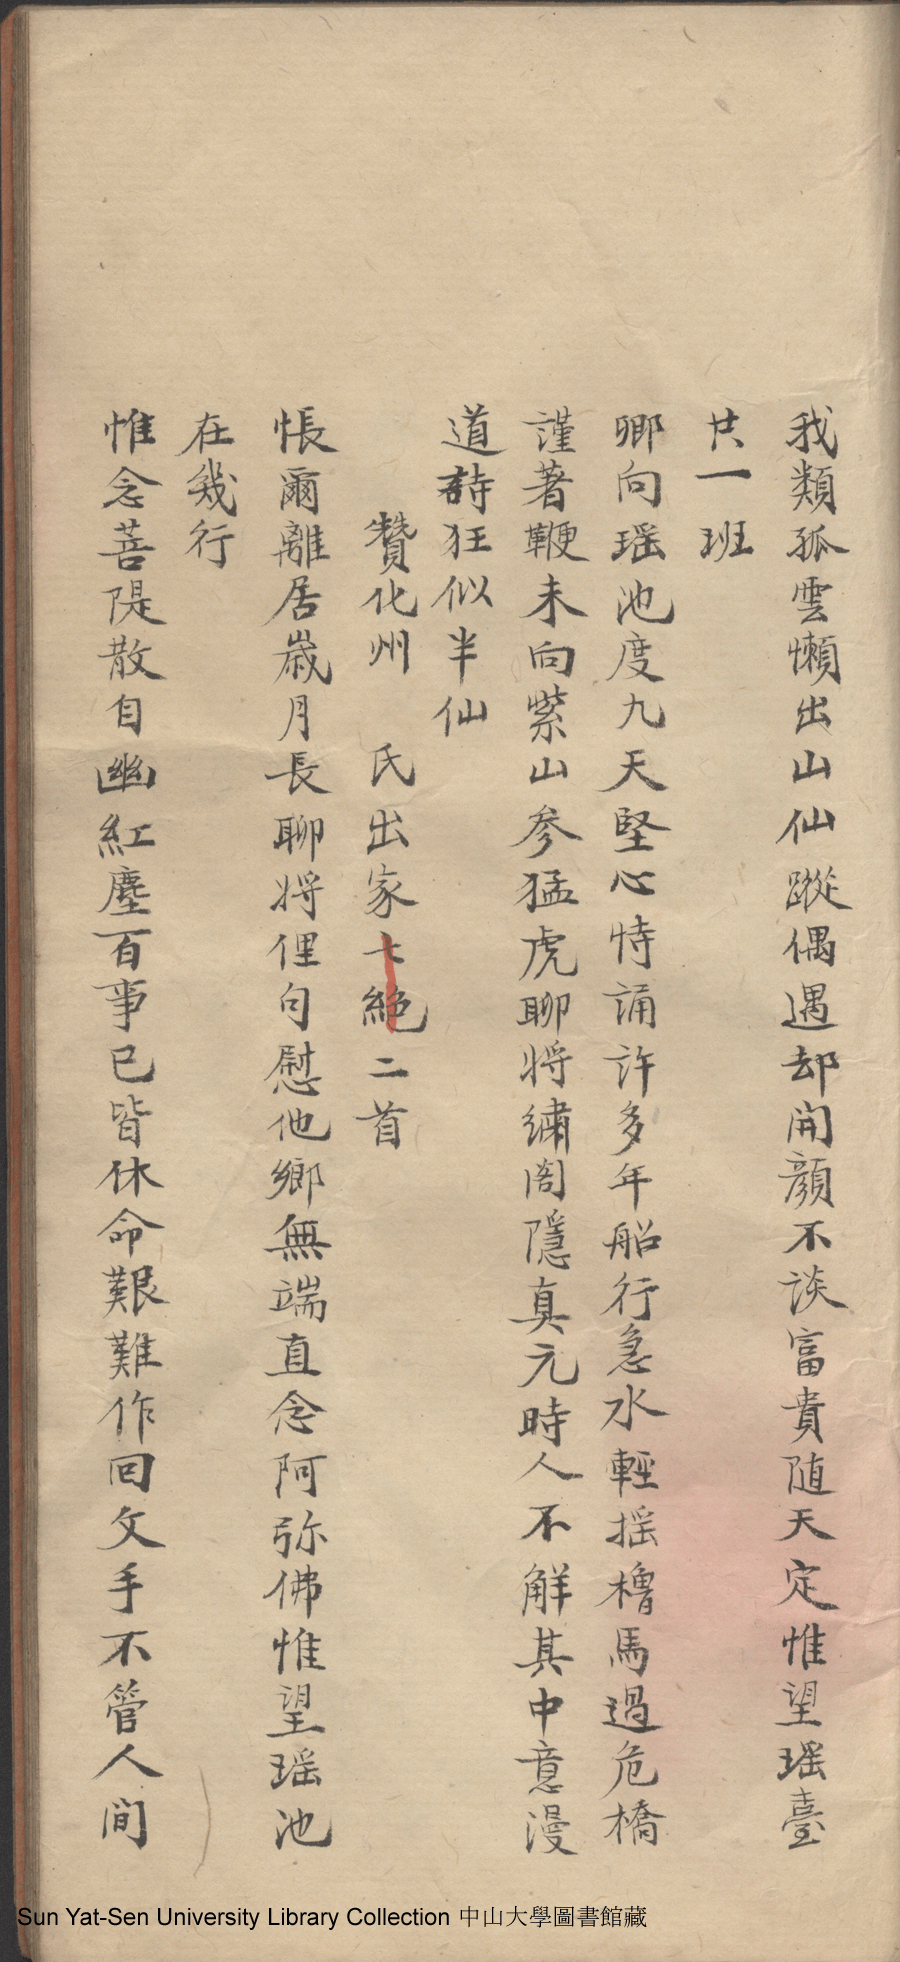 我類孤雲懶出山仙蹤偶遇却開顏不談富貴随天定惟望瑶臺
共一班
卿向瑶池度九天堅心恃誦許多年船行急水輕摇櫓馬過危橋
謹著鞭未向紫山參猛虎聊将繡閣隱真元時人不解其中意漫
道詩狂似半仙
贊化州 氏出家七絕二首
悵爾離居歲月長聊将俚句慰他鄉無端直念阿弥佛惟望瑶池
在幾行
惟念菩隄散自幽紅塵百事已皆休命艱難作回文手不管人间
Sun Yat-Sen University Library Collection 中山大學圖書館藏